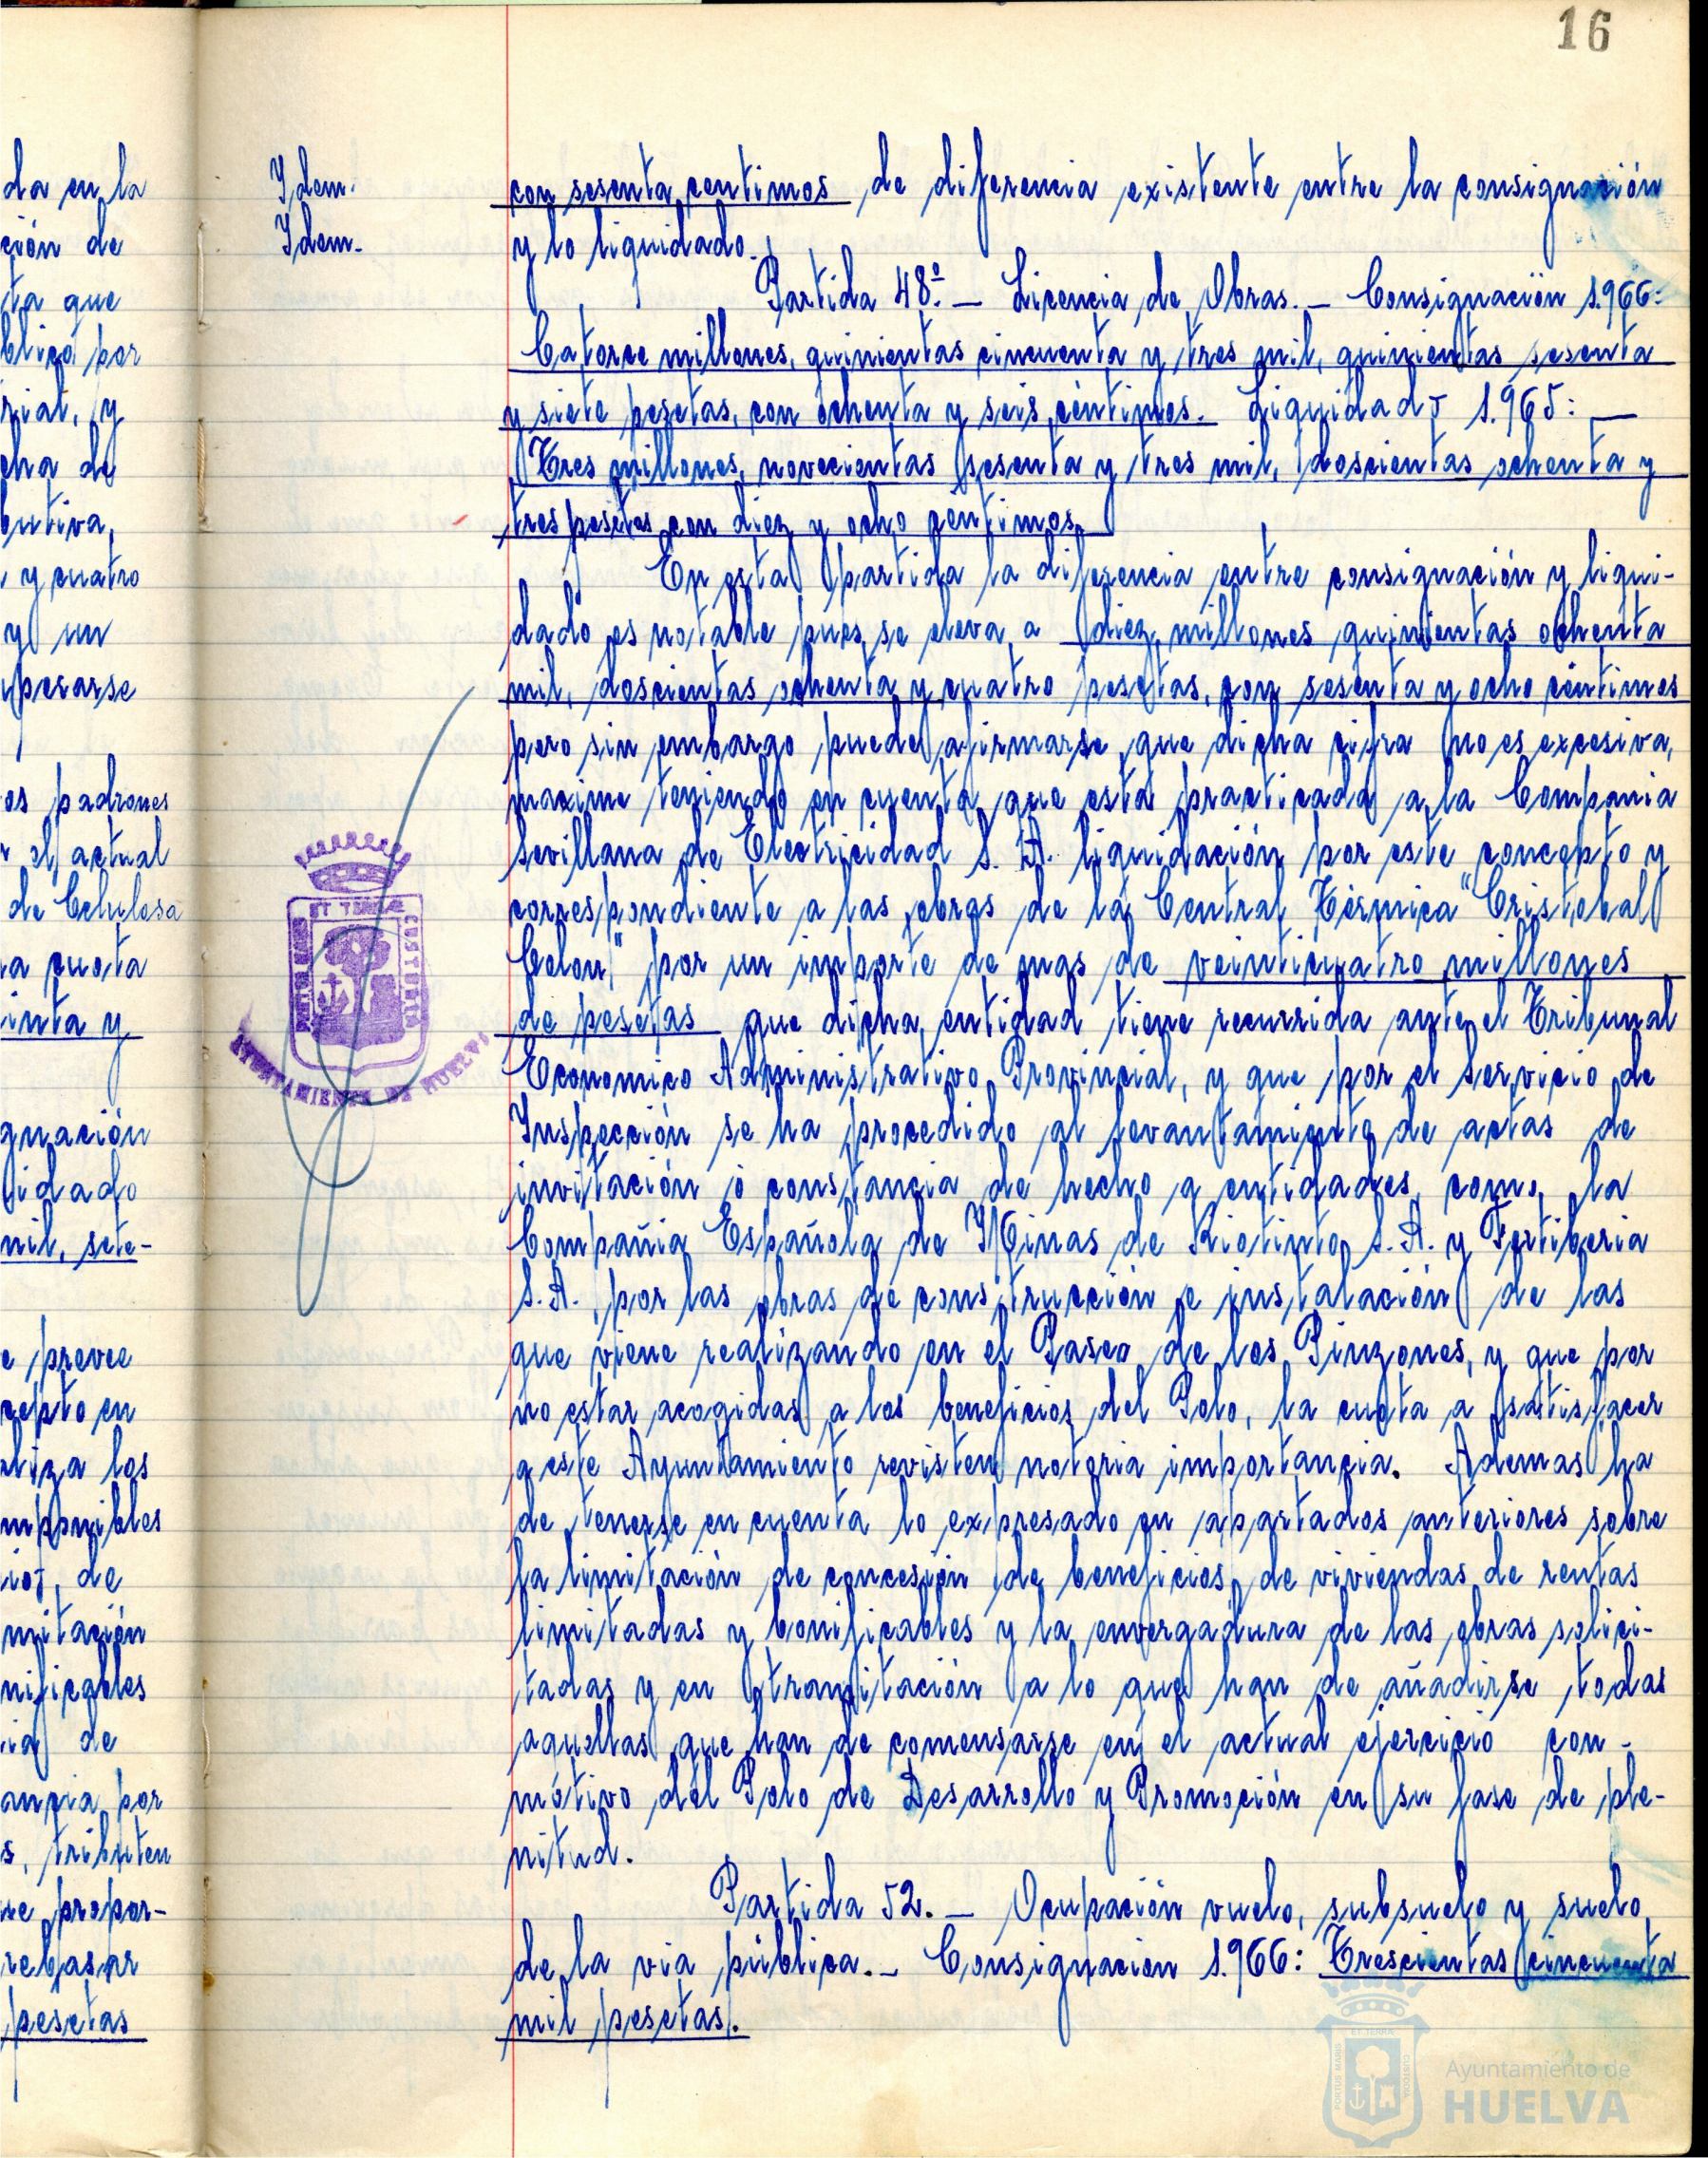 16
da en la
ción de
ta que
blica por
rial, y
cha de
butiva,
y cuatro
y un
perarse
os padrones
r el actual
de Celulosa
a cuota
inta y
gnación
idado
mil, sete-
e prevee
cepto en
aliza los
mponibles
ios, de
mitación
nificables
ia de
ancia por
s, tributen
ue propor-
rebasar
pesetas
Idem.
Idem.
con sesenta centimos de diferencia existente entre la consignación
y lo liquidado.
Partida 48ª.- Licencia de Obras.- Consignación 1.966:
Catorce millones, quinientas cincuenta y tres mil, quinientas sesenta
y siete pesetas, con ochenta y seis céntimos. Liquidado 1.965: —
Tres millones, novecientas sesenta y tres mil, doscientas ochenta y
tres pesetas con diez y ocho centimos.
En esta partida la diferencia entre consignación y liqui-
dado es notable pues se eleva a diez millones quinientas ochenta
mil, doscientas ochenta y cuatro pesetas, con sesenta y ocho céntimos
pero sin embargo puede afirmarse que dicha cifra no es excesiva,
maxime teniendo en cuenta que esta practicada a la Compania
Sevillana de Electricidad S. A. liquidación por este concepto y
correspondiente a las obras de la Central Térmica "Cristobal
Colon," por un importe de mas de veinticuatro millones
de pesetas que dicha entidad tiene recurrida ante el Tribunal
Economico Administrativo Provincial, y que por el Servicio de
Inspección se ha procedido al levantamiento de actas de
invitación ó constancia de hecho a entidades como la
Compañia Española de Minas de Riotinto S.A. y Fertiberia
S.A., por las obras de construcción e instalación de las
que viene realizando en el Paseo de los Pinzones, y que por
no estar acogidas a los beneficios del Polo, la cuota a satisfacer
a este Ayuntamiento revisten notoria importancia. Ademas ha
de tenerse en cuenta lo expresado en apartados anteriores sobre
la limitación de concesión de beneficios de viviendas de rentas
limitadas y bonificables y la envergadura de las obras solici-
tadas y en tramitación a lo que han de añadirse todas
aquellas que han de comensarse en el actual ejercicio con-
motivo del Polo de Desarrollo y Promoción en su fase de ple-
nitud.
Partida 52.- Ocupación vuelo, subsuelo y suelo,
de la via pública.- Consignacion 1.966: Trescientas cincuenta
mil pesetas.
PORTUS MARIS
ET TERRAE
CUSTODIA
AYUNTAMIENTO DE HUELVA
Ayuntamiento de
HUELVA